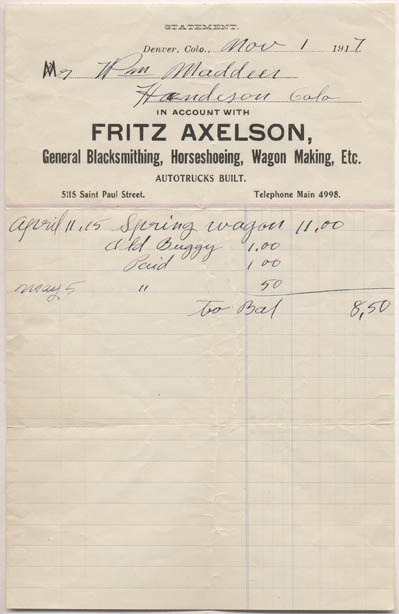 STATEMENT.
Denver, Colo., Nov 1 1917
Mr Wm Madden
Henderson Colo
IN ACCOUNT WITH
FRITZ AXELSON,
General Blacksmithing, Horseshoeing, Wagon Making, Etc.
AUTOTRUCKS BUILT.
5115 Saint Paul Street. Telephone Main 4998.
April 11, 15 Spring wagon 11.00
Old Buggy 1.00
Paid 1 00
May 5 " 50
to Bal 8,50